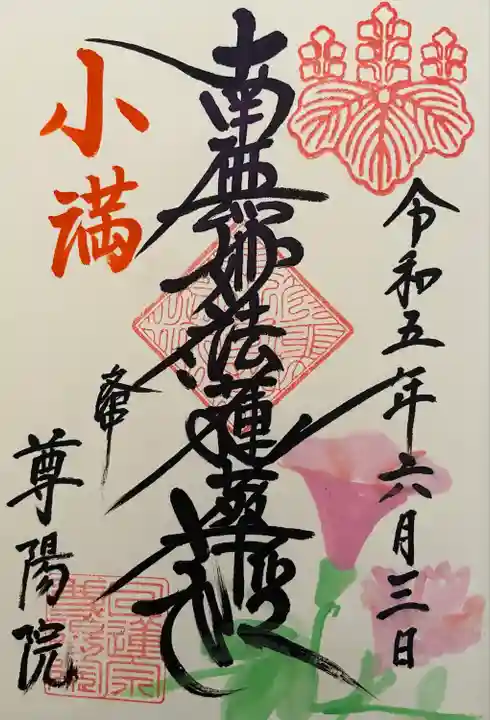 令和五年六月三日
南無妙法蓮華経
小満
尊陽院